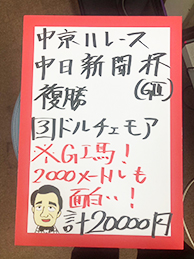 中京11レース
中日新聞杯
(GⅢ)
複勝
③ドルチェモア
※GⅠ馬!
2000メートルも
面白い!
計20000円